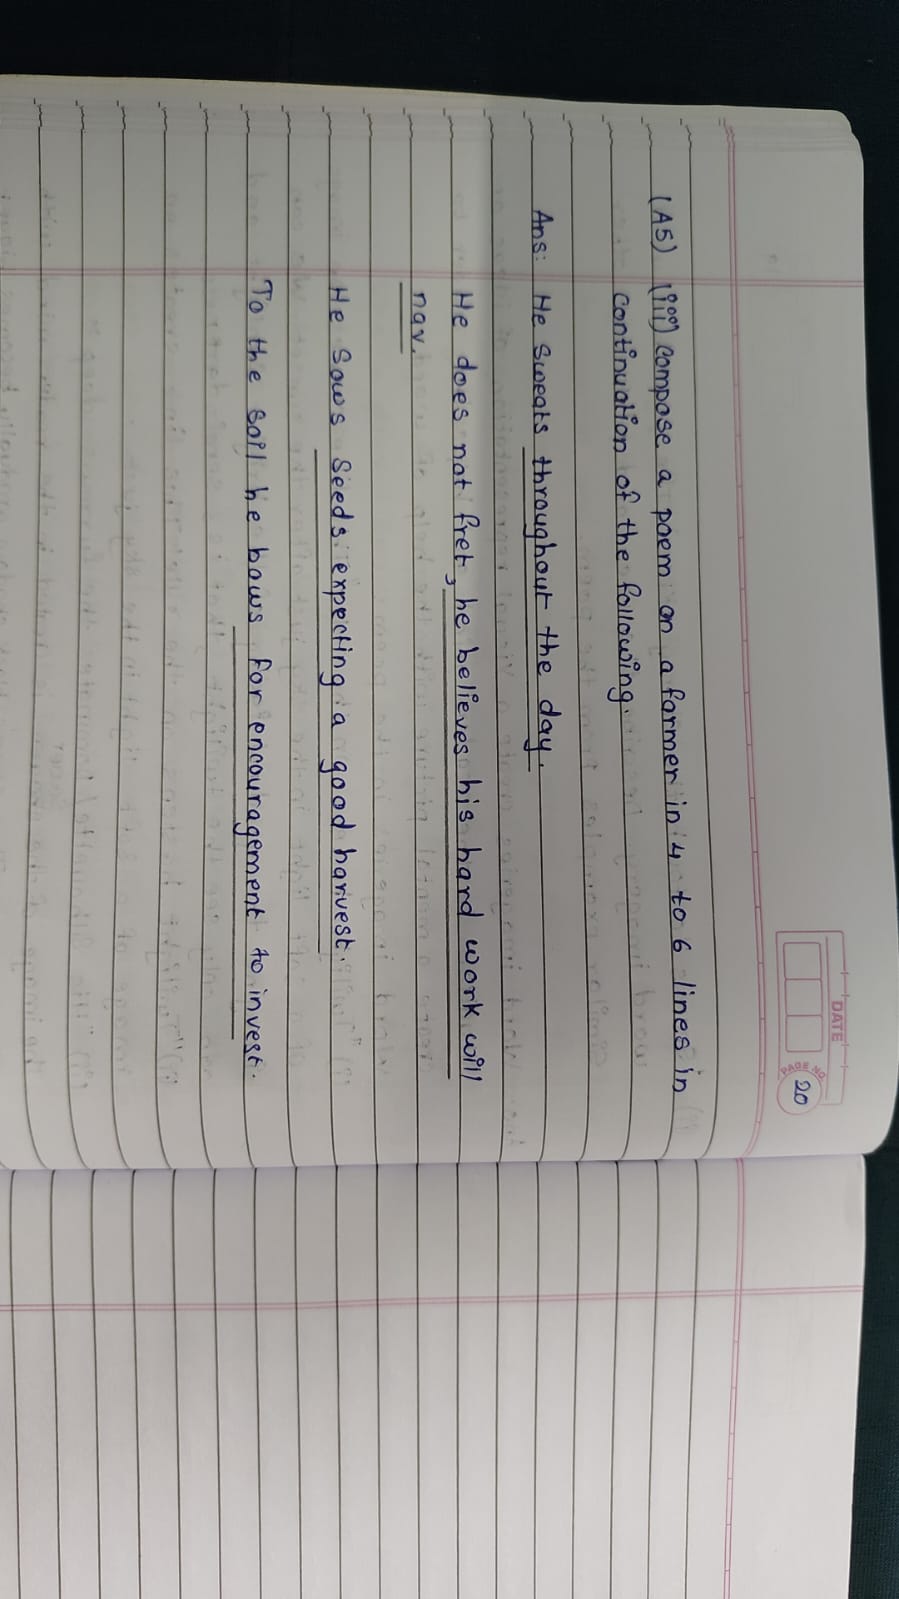 DATE
PAGE NO.
20
(A5) (iii) compose a poem on a farmer in 4 to 6 lines in
continuation of the following.
Ans: He sweats throughout the day.
He does not fret, he believes his hard work will
pay.
He sows seeds expecting a good harvest.
To the soil he bows for encouragement to invest.